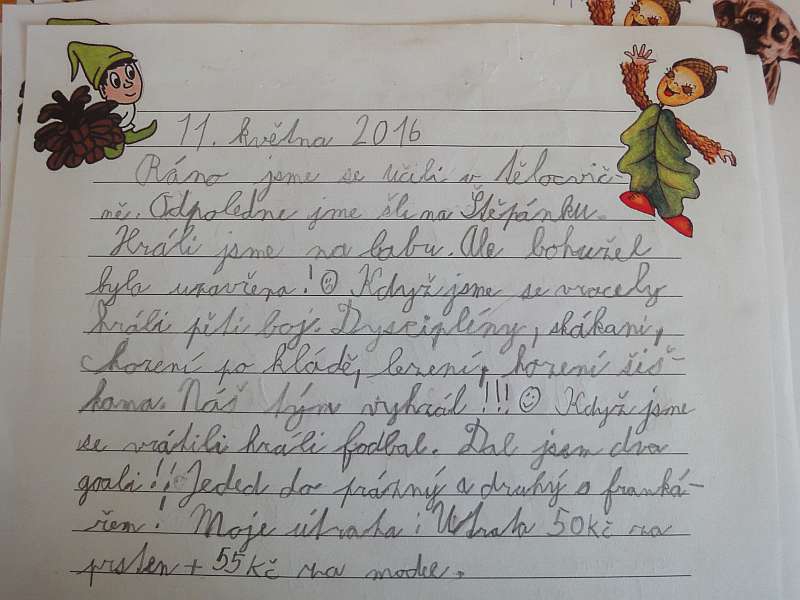 11. května 2016
Ráno jsme se učili v tělocvič-
ně. Odpoledne jme šli na Štěpánku.
Hráli jsme na babu. Ale bohužel
byla uzavřena! Když jsme se vracely
hráli pěti boj. Dysciplíny, skákani,
chození po kládě, lezení, hození šiš-
kama. Náš tým vyhrál!!! Když jsme
se vrátili hráli fodbal. Dal jsem dva
goali!! Jeded do prázný a druhý s franká-
řem! Moje útrata: Utrata 50kč za
prsten + 55kč za model.